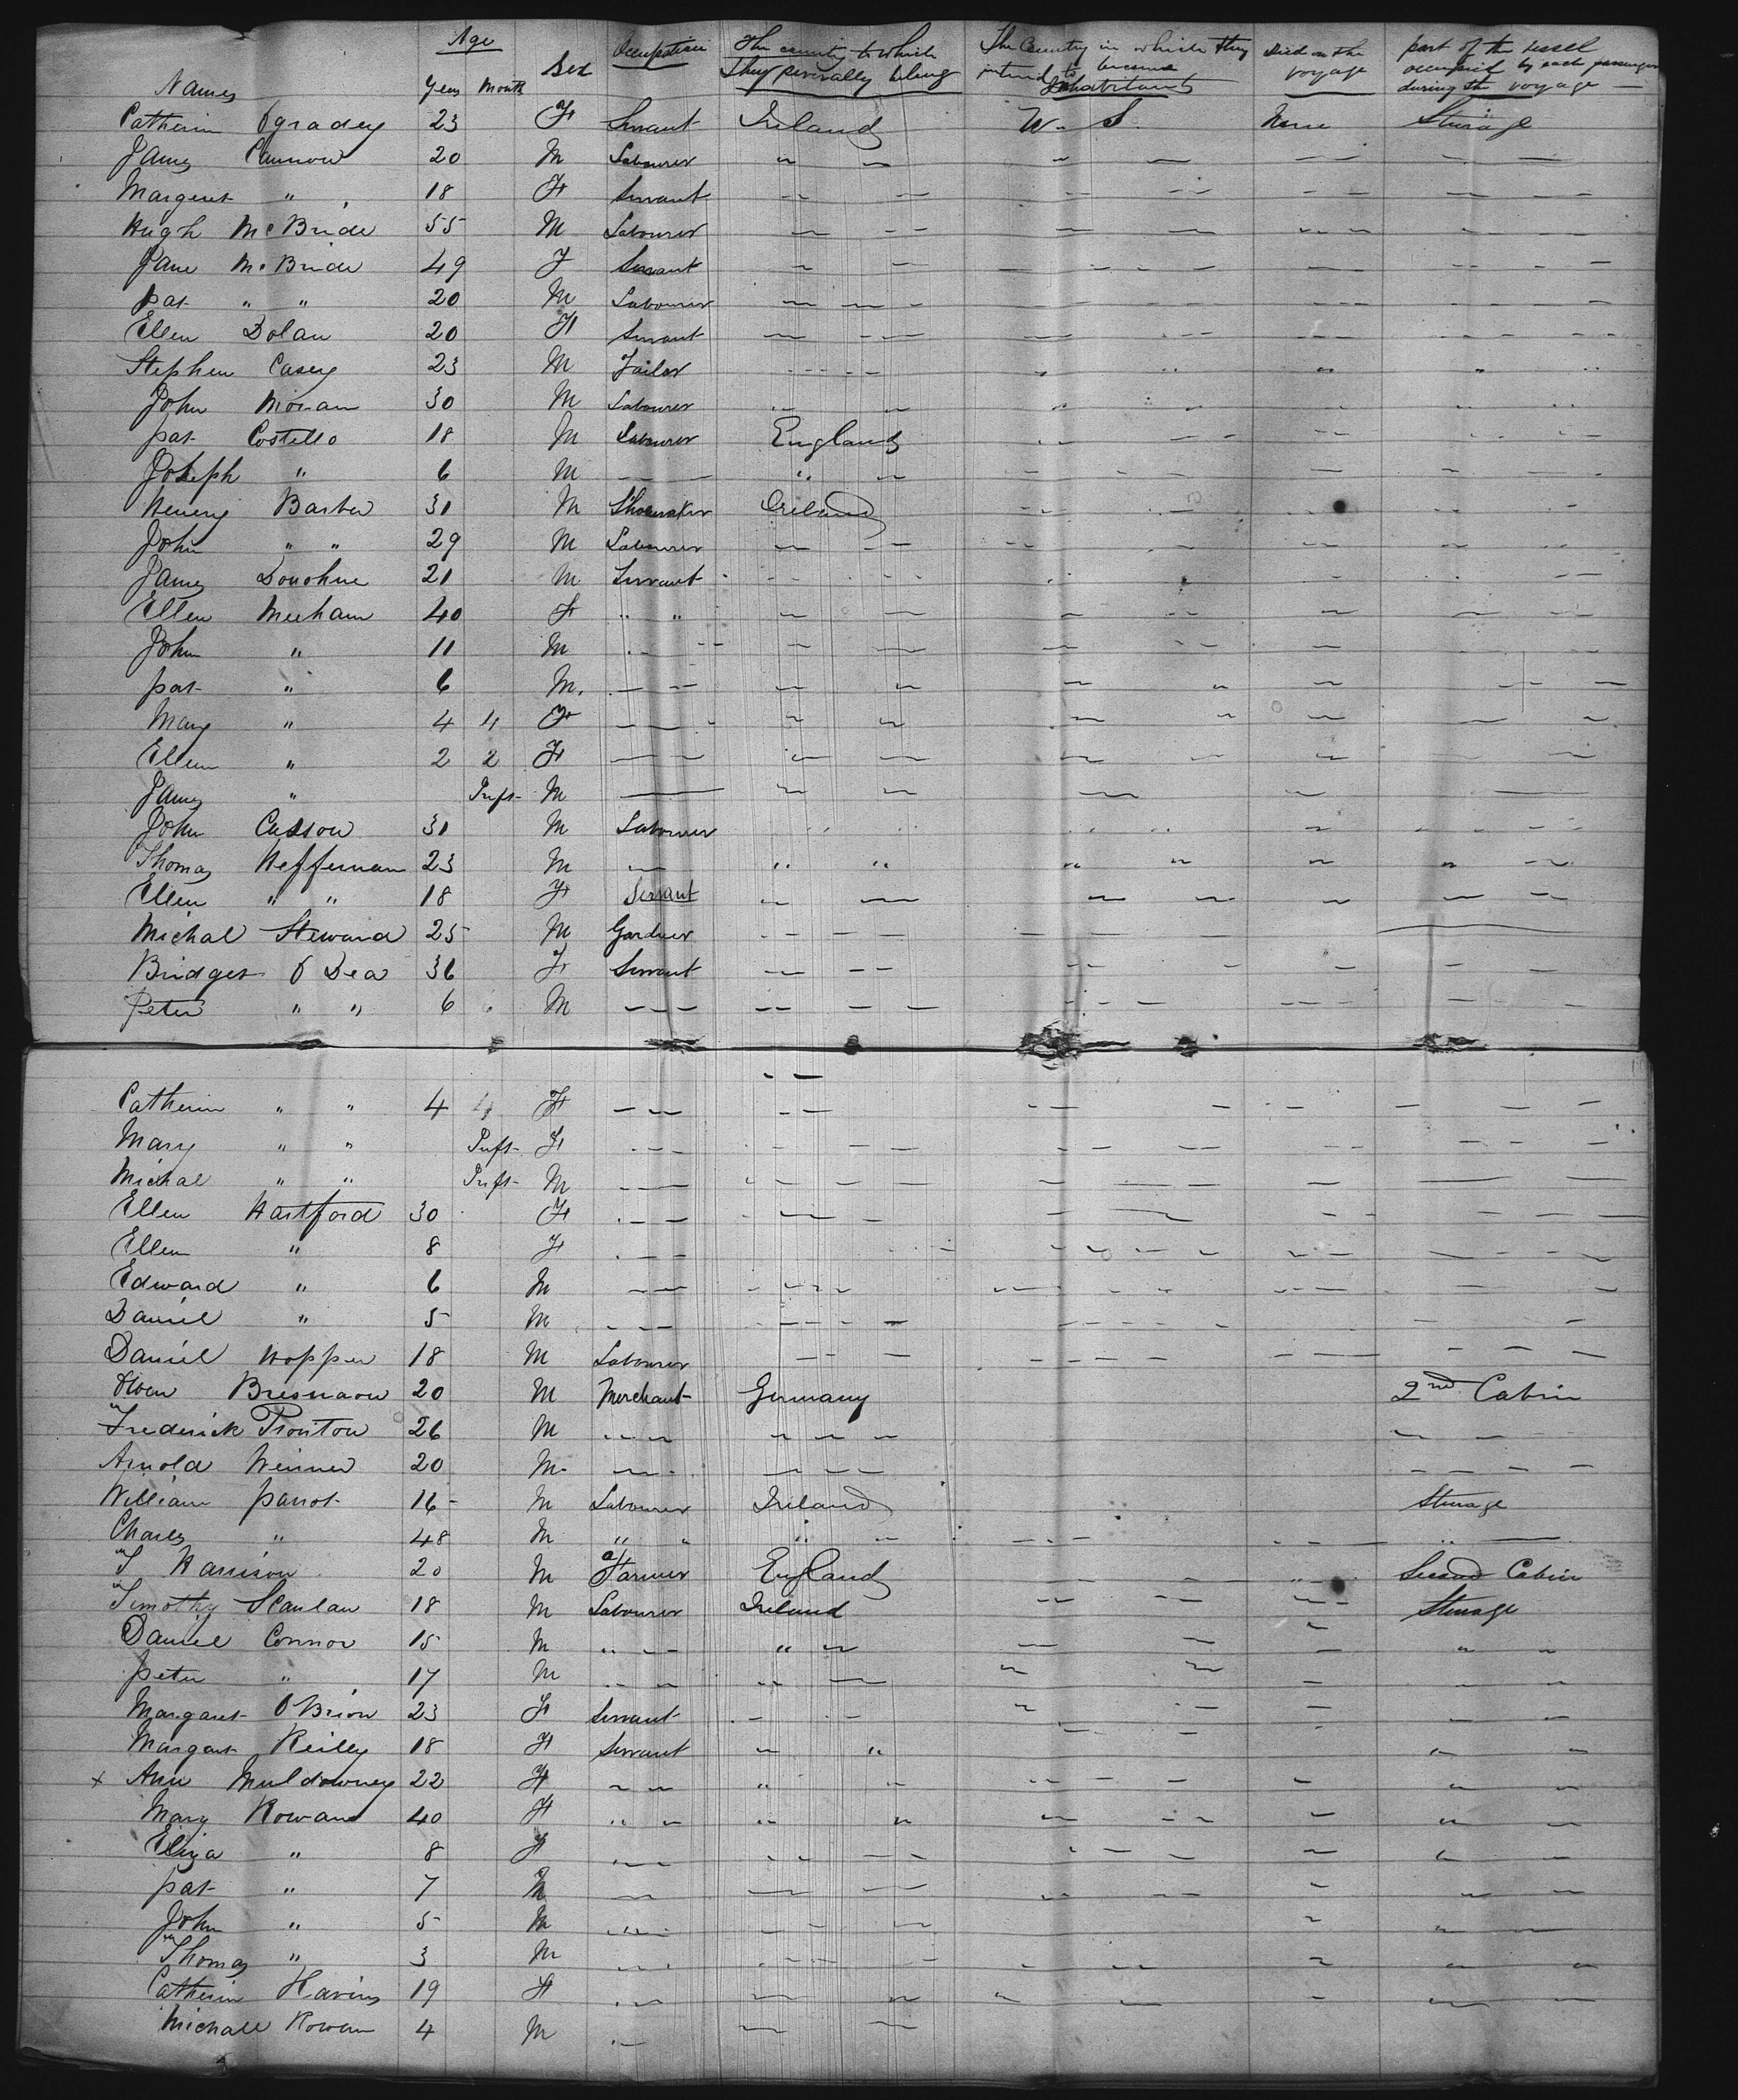 Names Age Years Month Sex Occupation The county to which They severally belong The Country in which they intend to become Inhabitants Died on the voyage part of the vessel occupied by each passenger during the voyage
Catherin Ogradey 23 F Servant Ireland U. S. None Sterage
James Cannow 20 M Labourer " "
Margeret " 18 F Servant
Hugh McBride 55 M Labourer
Jane McBride 49 F Servant
pat " " 20 M Labourer
Ellen Dolan 20 F Servant
Stephen Casey 23 M Tailor
John Moran 30 M Labourer
pat Costello 18 M Labourer England
Joseph " 6 M " "
Henery Barber 31 M Shoemaker Ireland
John " " 29 M Labourer
James Donohue 21 M Servant
Ellen Meeham 40 F " "
John " 11 M
pat " 6 M.
Mary " 4 4 F
Ellen " 2 2 F
James " Inft M
John Casson 31 M Labourer
Thomas Heffernan 23 M " "
Ellen " " 18 F Servant
Michal Steward 25 M Gardner
Bridget O Dea 36 F Servant
Peter " " 6 M
Catherin " " 4 4 F
Mary " " Inft F
Michal " " Inft M
Ellen Hartford 30 F
Ellen " 8 F
Edward " 6 M
Daniel " 5 M
Daniel Hopper 18 M Labourer
Bresnaow 20 M Merchant Germany 2nd Cabin
Frederick 26 M
Arnold 20 M
William parrot 16 M Labourer Ireland Sterage
Charles " 48 M " " " "
Harrison 20 M Farmer England Second Cabin
Timothy Scanlan 18 M Labourer Ireland Sterage
Daniel Connor 15 M " "
peter " 17 M
Margaret O Brion 23 F Servant
Margaret Reilly 18 F Servant
x Ann Muldowney 22 F
Mary Rowan 40 F
Eliza " 8 F
pat " 7 M
John " 5 M
Thomas " 3 M
Catherin Havins 19 F
Michall Rowan 4 M